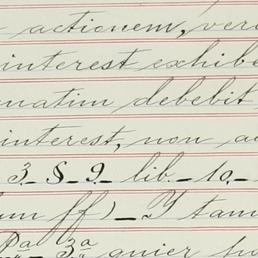 actionem, vero
interest exhibe
natim debebit
interest, non ac
3_ S_ 9_ lib._ 10_
um ff)_ I tam
Pª_ 3ª quier